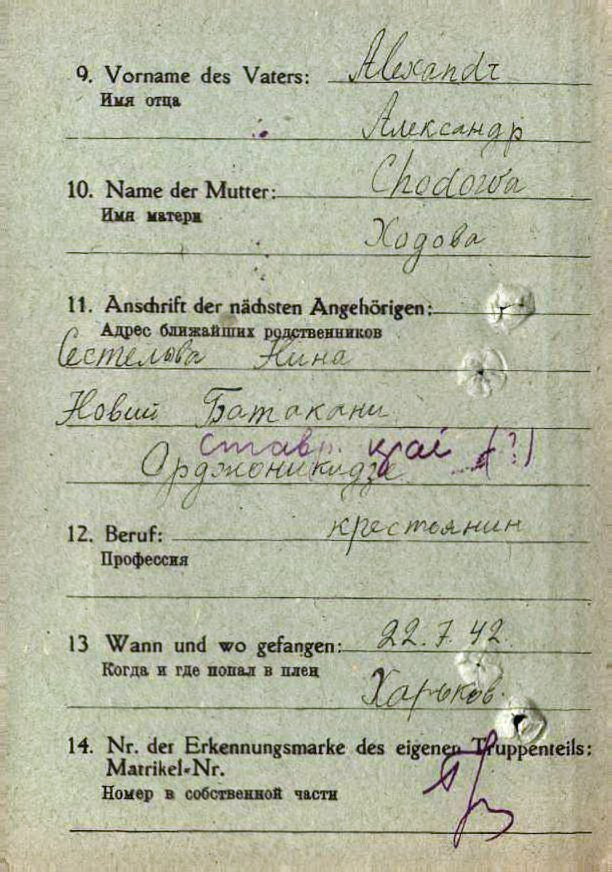 9. Vorname des Vaters: Alexandr
Имя отца
Александр
10. Name der Mutter: Chodowa
Имя матери
Ходова
11. Anschrift der nächsten Angehörigen:
Адрес ближайших родственников
Сестелова Нина
Новий Батакани
ставр. край (?)
Орджоникидзе
12. Beruf: крестоянин
Профессия
13 Wann und wo gefangen: 22.7.42.
Когда и где попал в плен
Харьков.
14. Nr. der Erkennungsmarke des eigenen Truppenteils:
Matrikel-Nr.
Номер в собственной части